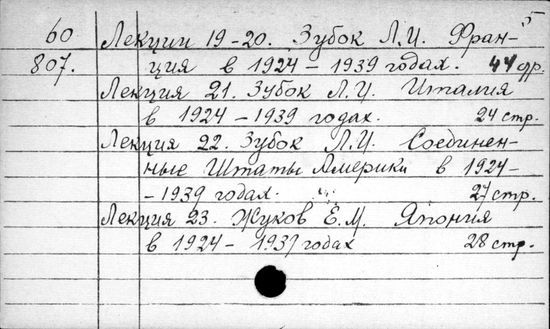 5
60 Лекции 19-20. Зубок Л.И. Фран-
807. ция в 1924-1939 годах. 44 стр.
Лекция 21. Зубок Л.И. Италия
в 1924-1939 годах. 24 стр.
Лекция 22. Зубок Л.И. Соединен-
ные Штаты Америки в 1924-
-1939 годах. 27 стр.
Лекция 23. Жуков Е.М. Япония
в 1924-1939 годах 28 стр.